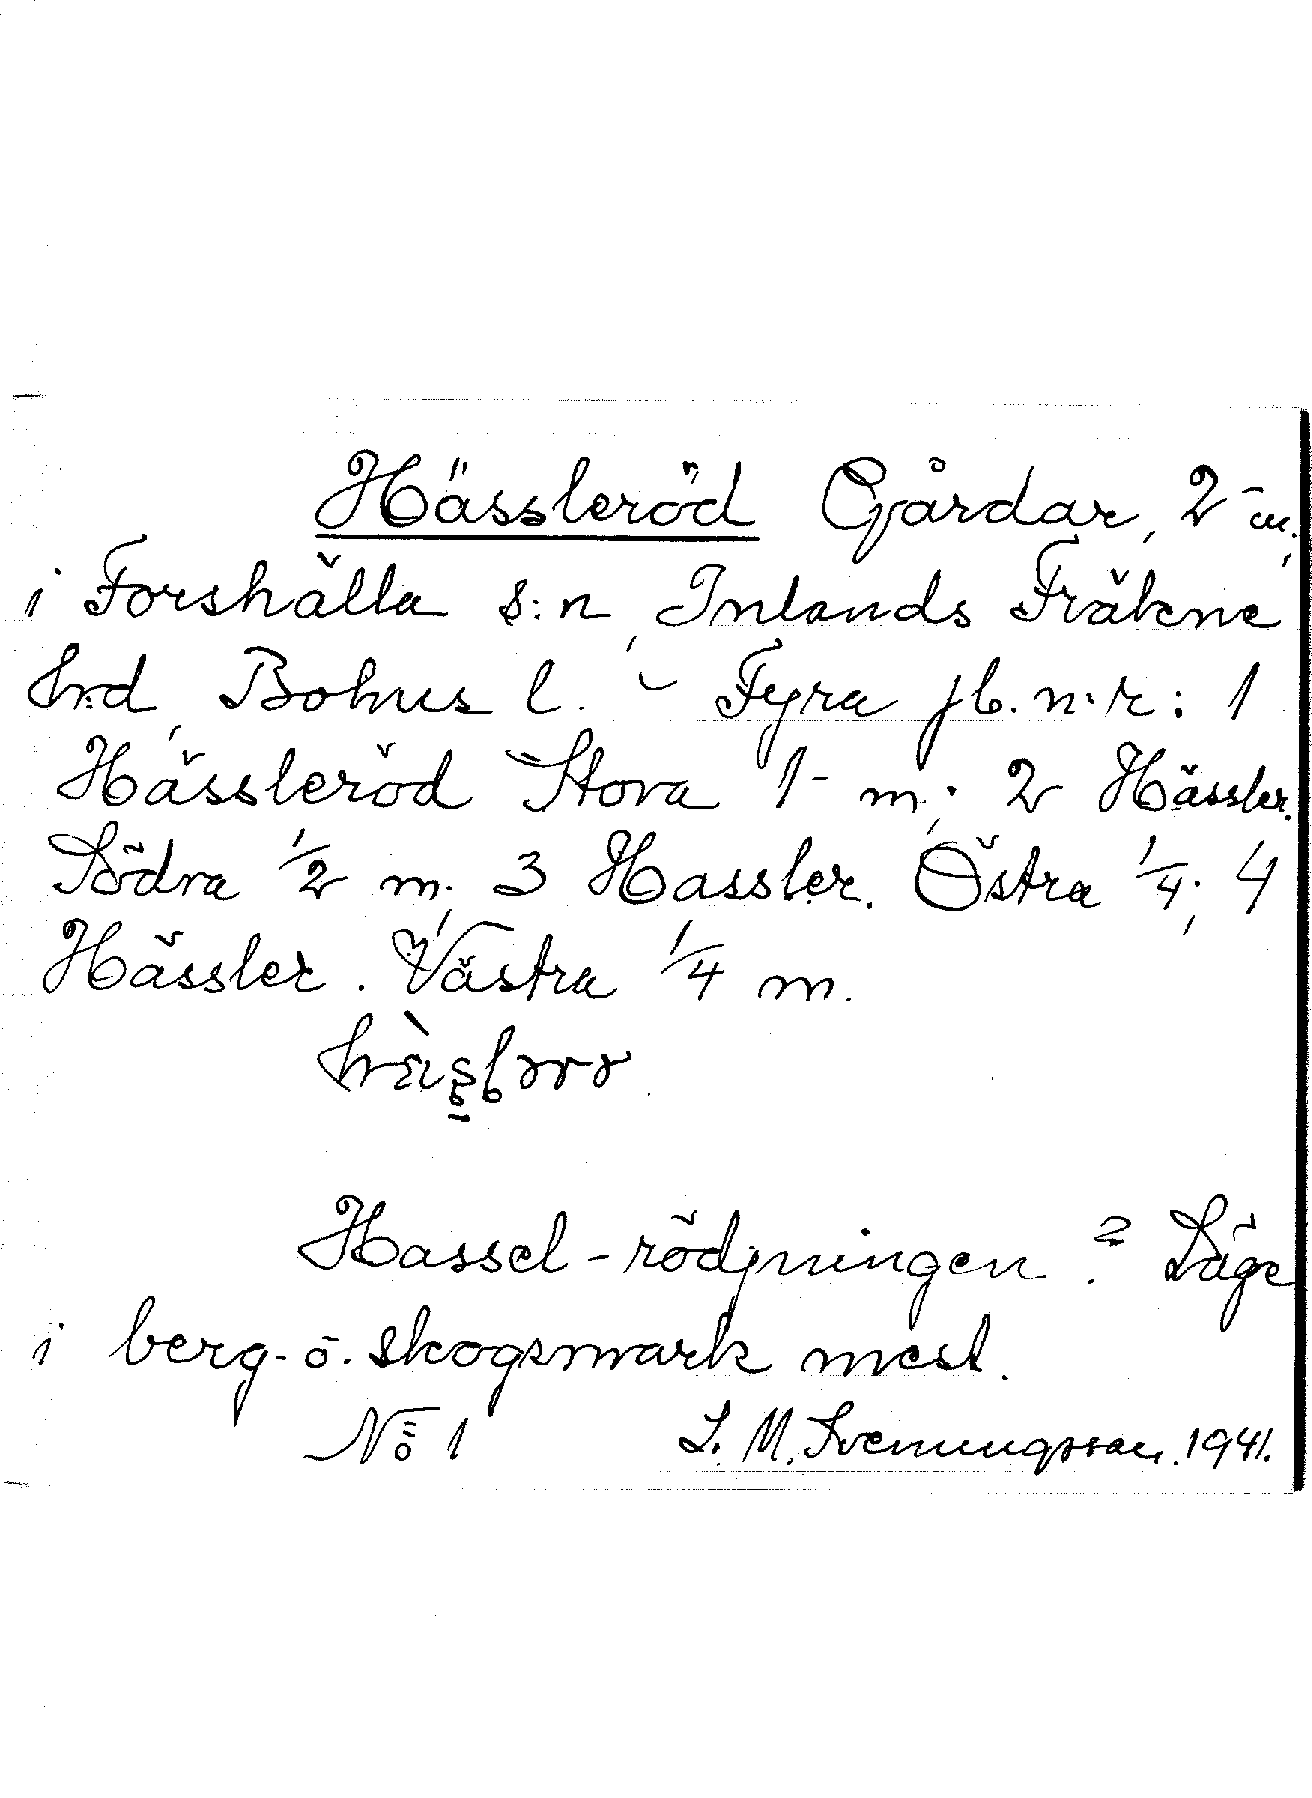 Hässleröd Gårdar, 2 - m.,
i Forshälla s:n, Inlands Fräkne
hrd, Bohus l. - Fyra jb. n:r: 1
Hässleröd Stora 1 - m.; 2 Hässler.
Södra 1/2 m.; 3 Hassler. Östra 1/4.; 4
Hässler. Västra 1/4 m.
Hassel-rödjningen? Läge
i berg- o. skogsmark mest.
No 1 L. M. Svenungsson. 1941.